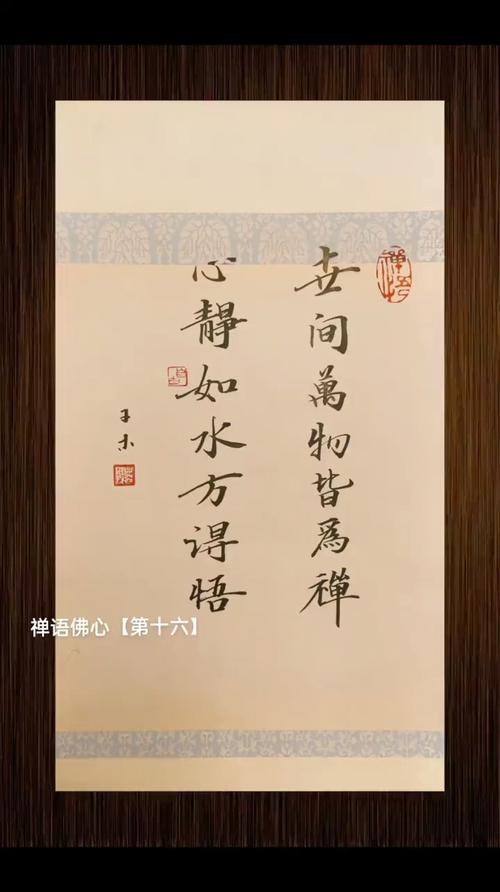 世间萬物皆爲禪
心靜如水方得悟
子木
禅语佛心【第十六】